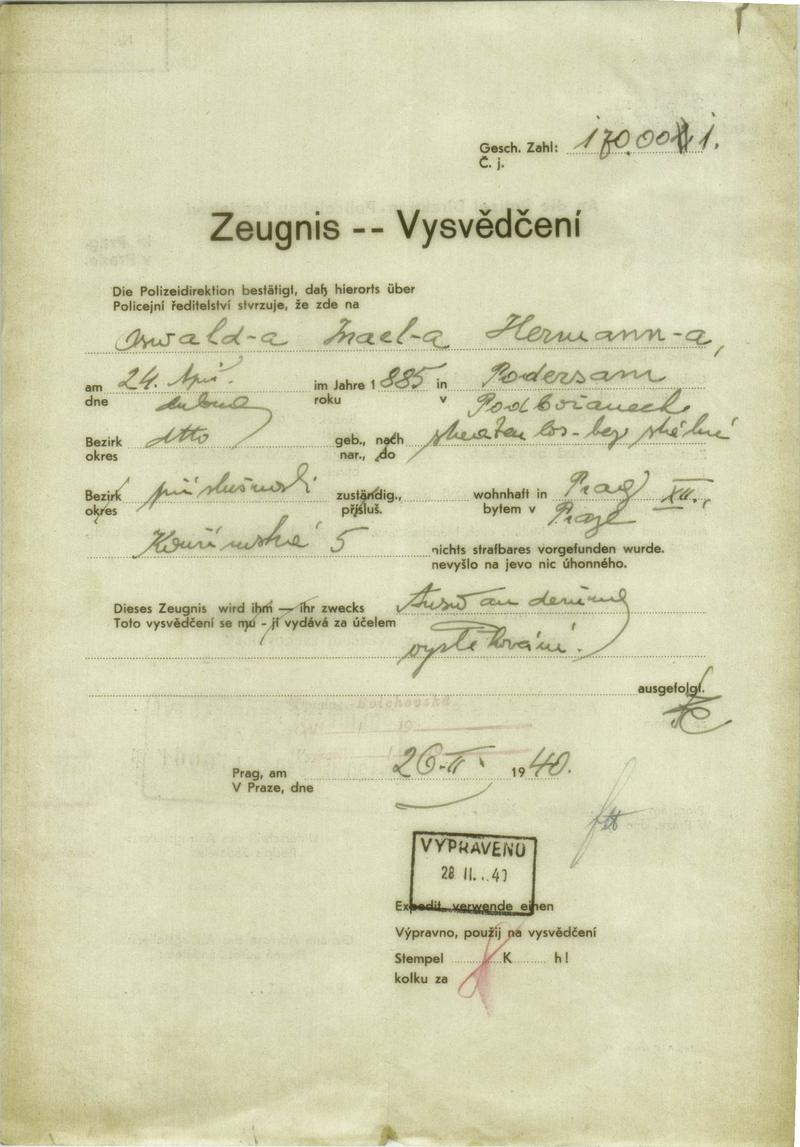 Gesch. Zahl: 170.001 1.
Č. j.
Zeugnis -- Vysvědčení
Die Polizeidirektion bestätigt, daß hierorts über
Policejní ředitelství stvrzuje, že zde na
Oswald-a Israel-a Hermann-a,
am 24. April im Jahre 1885 in Podersam
dne dubna roku v Podbořanech
Bezirk dtto geb., nach staatenlos - bez státní
okres nar., do
Bezirk příslušnosti zuständig., wohnhaft in Prag XII.,
okres přísluš. bytem v Praze
Kouřimská 5 nichts strafbares vorgefunden wurde.
nevyšlo na jevo nic úhonného.
Dieses Zeugnis wird ihm — ihr zwecks Auswanderung
Toto vysvědčení se mu - jí vydává za účelem
vystěhování.
ausgefolgt.
Prag, am 26.II. 1940.
V Praze, dne
VYPRAVENO
28 II. 40
Expedit, verwende einen
Výpravno, použij na vysvědčení
Stempel K h!
kolku za